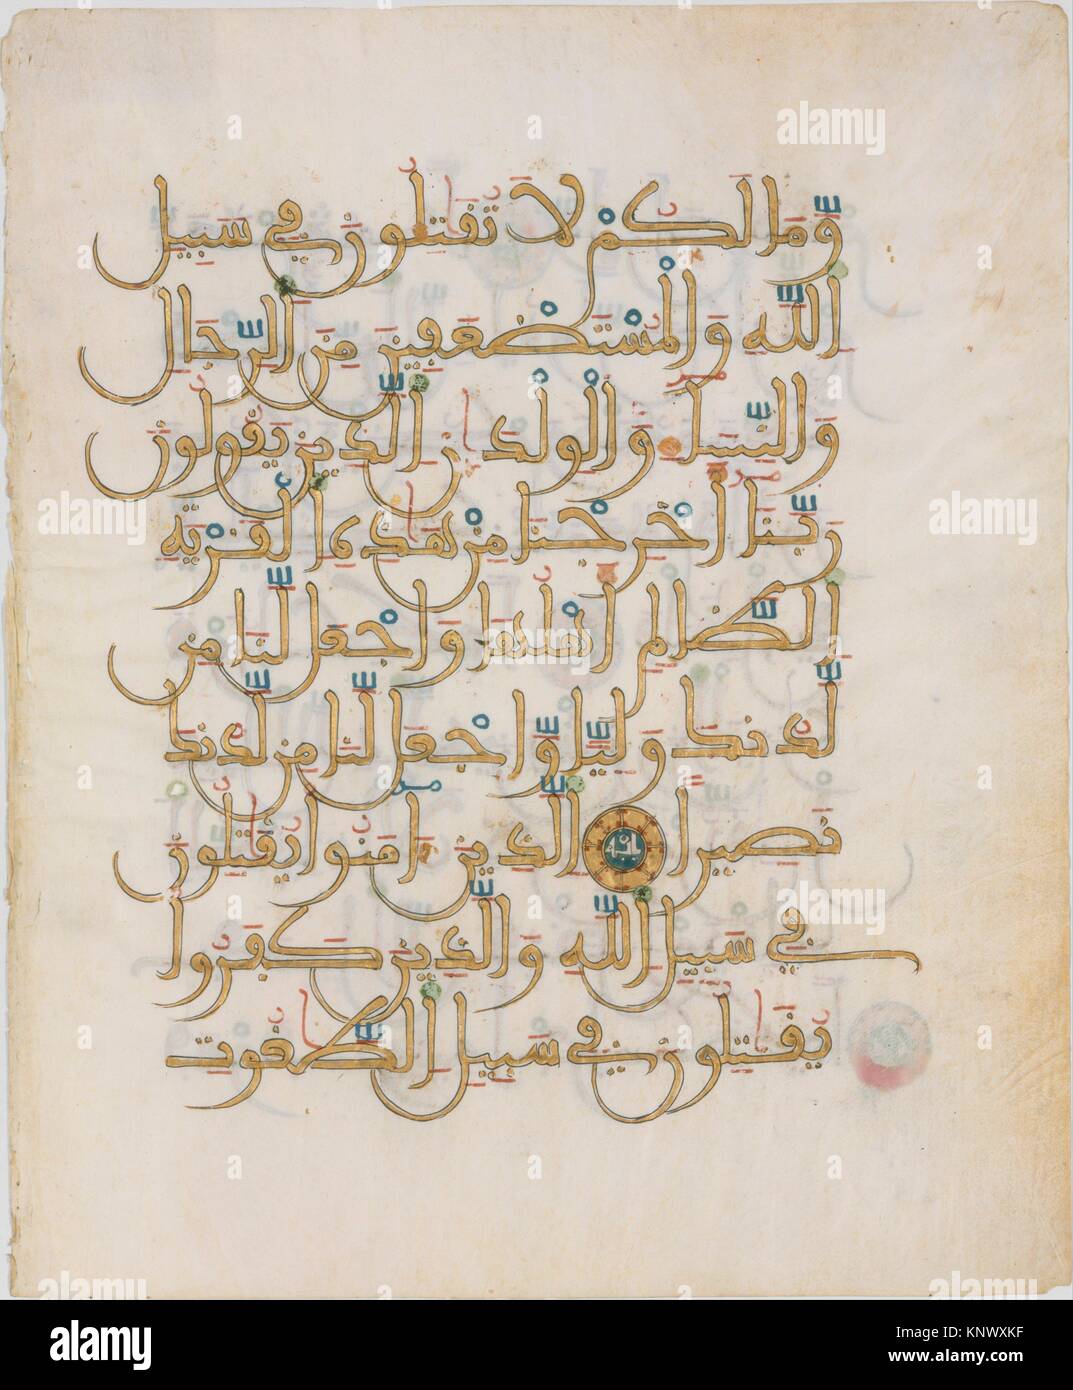 وَّمَا لَكُمْ لَا تُقَتِلُونَ فِي سَبِيلِ
اللَّهِ وَالْمُسْتَضْعَفِينَ مِنَ الرِّجَالِ
وَالنِّسَاءِ وَالْوِلْدَانِ الَّذِينَ يَقُولُونَ
رَبَّنَا أَخْرِجْنَا مِنْ هَذِهِ الْقَرْيَةِ
الظَّالِمِ أَهْلُهَا وَاجْعَل لَّنَا مِن
لَّدُنكَ وَلِيًّا وَّاجْعَل لَّنَا مِن لَّدُنكَ
نَصِيرًا الَّذِينَ ءَامَنُوا يُقَتِلُونَ
فِي سَبِيلِ اللَّهِ وَالَّذِينَ كَفَرُوا
يُقَتِلُونَ فِي سَبِيلِ الطَّغُوتِ
alamy
a
alamy stock photo
alamy
Image ID: KNWXKF
www.alamy.com